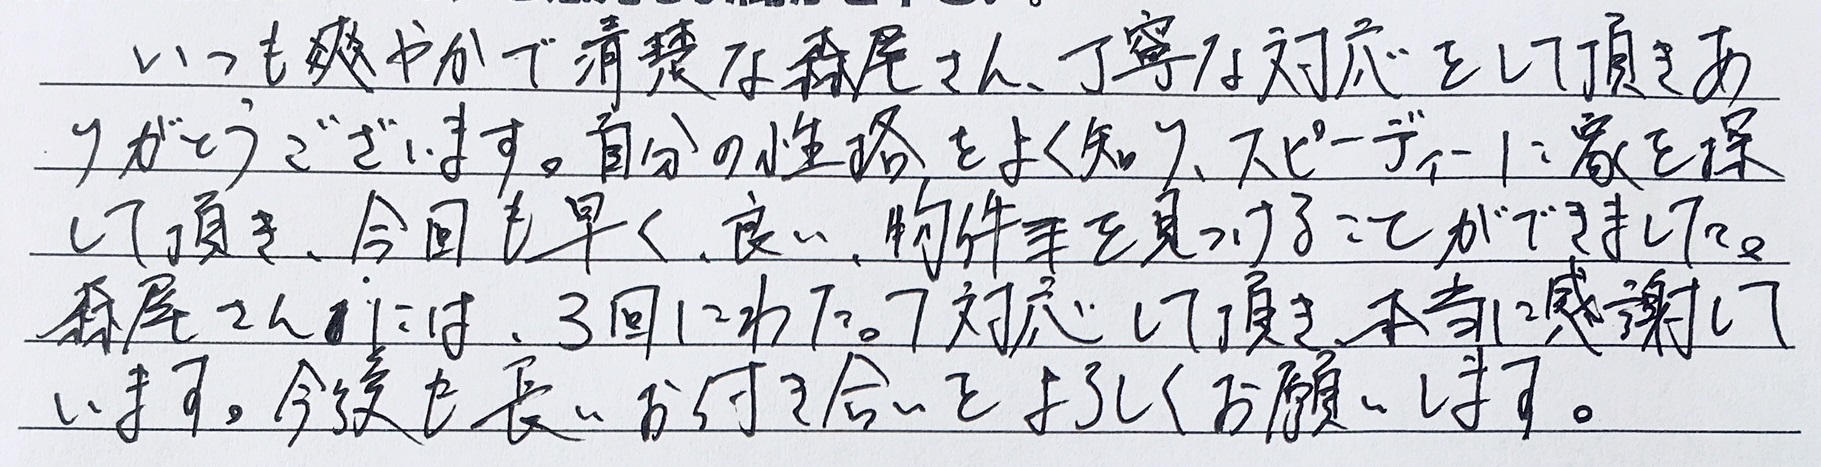 いつも爽やかで清楚な森尾さん、丁寧な対応をして頂きあ
りがとうございます。自分の性格をよく知り、スピーディーに家を探
して頂き、今回も早く、良い、物件を見つけることができました。
森尾さんには、3回にわたって対応して頂き、本当に感謝して
います。今後も長いお付き合いをよろしくお願いします。